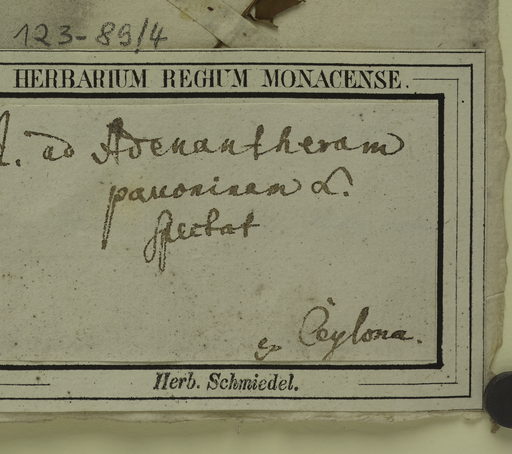 123-89/4
HERBARIUM REGIUM MONACENSE.
ad Adenantheram
pavoninam L.
spectat
ex Ceylona.
Herb. Schmiedel.